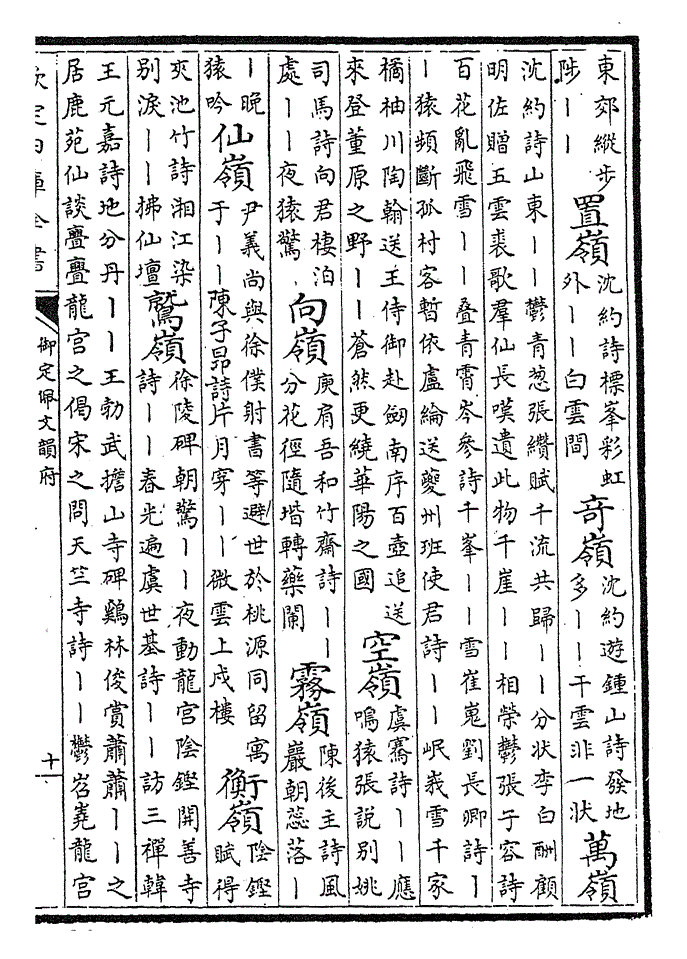 東郊縱步
陟丨丨
置嶺
沈約詩標峯彩虹
外丨丨白雲間
奇嶺
沈約遊鍾山詩發地
多丨丨干雲非一状
萬嶺
沈約詩山東丨丨鬱青葱張纘賦千流共歸丨丨分状李白酬顧
明佐贈五雲裘歌羣仙長嘆遺此物千崖丨丨相縈鬱張子容詩
百花亂飛雪丨丨叠青霄岑參詩千峯丨丨雪崔嵬劉長卿詩丨
丨猿頻斷孤村客暫依盧綸送夔州班使君詩丨丨岷峩雪千家
橘柚川陶翰送王侍御赴劒南序百壺追送
來登董原之野丨丨蒼然更繞華陽之國
空嶺
虞騫詩丨丨應
鳴猿張説别姚
司馬詩向君棲泊
處丨丨夜猿驚
向嶺
庾肩吾和竹齋詩丨丨
分花徑隨堦轉藥闌
霧嶺
陳後主詩風
巖朝蕊落丨
丨晚
猿吟
仙嶺
尹義尚與徐僕射書等避世於桃源同留寓
于丨丨陳子昂詩片月穿丨丨微雲上戍樓
衡嶺
陰鏗
賦得
夾池竹詩湘江染
别淚丨丨拂仙壇
鷲嶺
徐陵碑朝驚丨丨夜動龍宫陰鏗開善寺
詩丨丨春光遍虞世基詩丨丨訪三禪韓
王元嘉詩地分丹丨丨王勃武擔山寺碑鷄林俊賞蕭蕭丨丨之
居鹿苑仙談亹亹龍宫之偈宋之問天竺寺詩丨丨鬱岧嶤龍宫
欽定四庫全書
御定佩文韻府
十